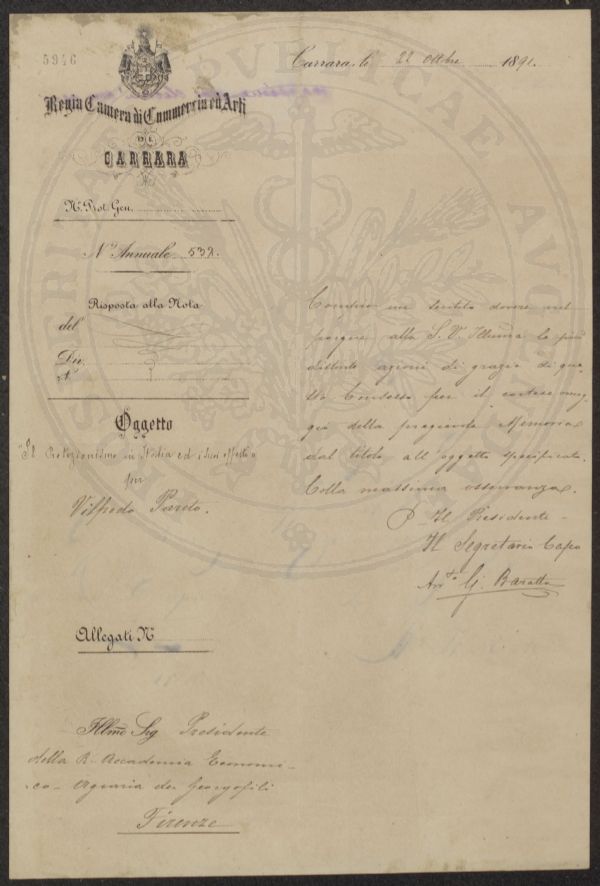 5946
Carrara, lì 22 Ottobre 1891.
Regia Camera di Commercio ed Arti
DI
CARRARA
N.° Prot. Gen.
N.° Annuale 532.
Risposta alla Nota
del
Div.
N.°
Oggetto
"Il Protezionismo in Italia ed i suoi effetti"
per
Vilfredo Pareto.
Compio un sentito dovere nel
porgere alla S. V. Illma le più
distinte azioni di grazie di que-
sto Consesso per il cortese omag-
gio della pregievole Memoria
dal titolo all'oggetto specificato.
Colla massima osservanza.
P. Il Presidente
Il Segretario Capo
G. Baratta
Allegati N.°
Illmo Sig Presidente
della R. Accademia Economi-
co- Agraria dei Georgofili
Firenze